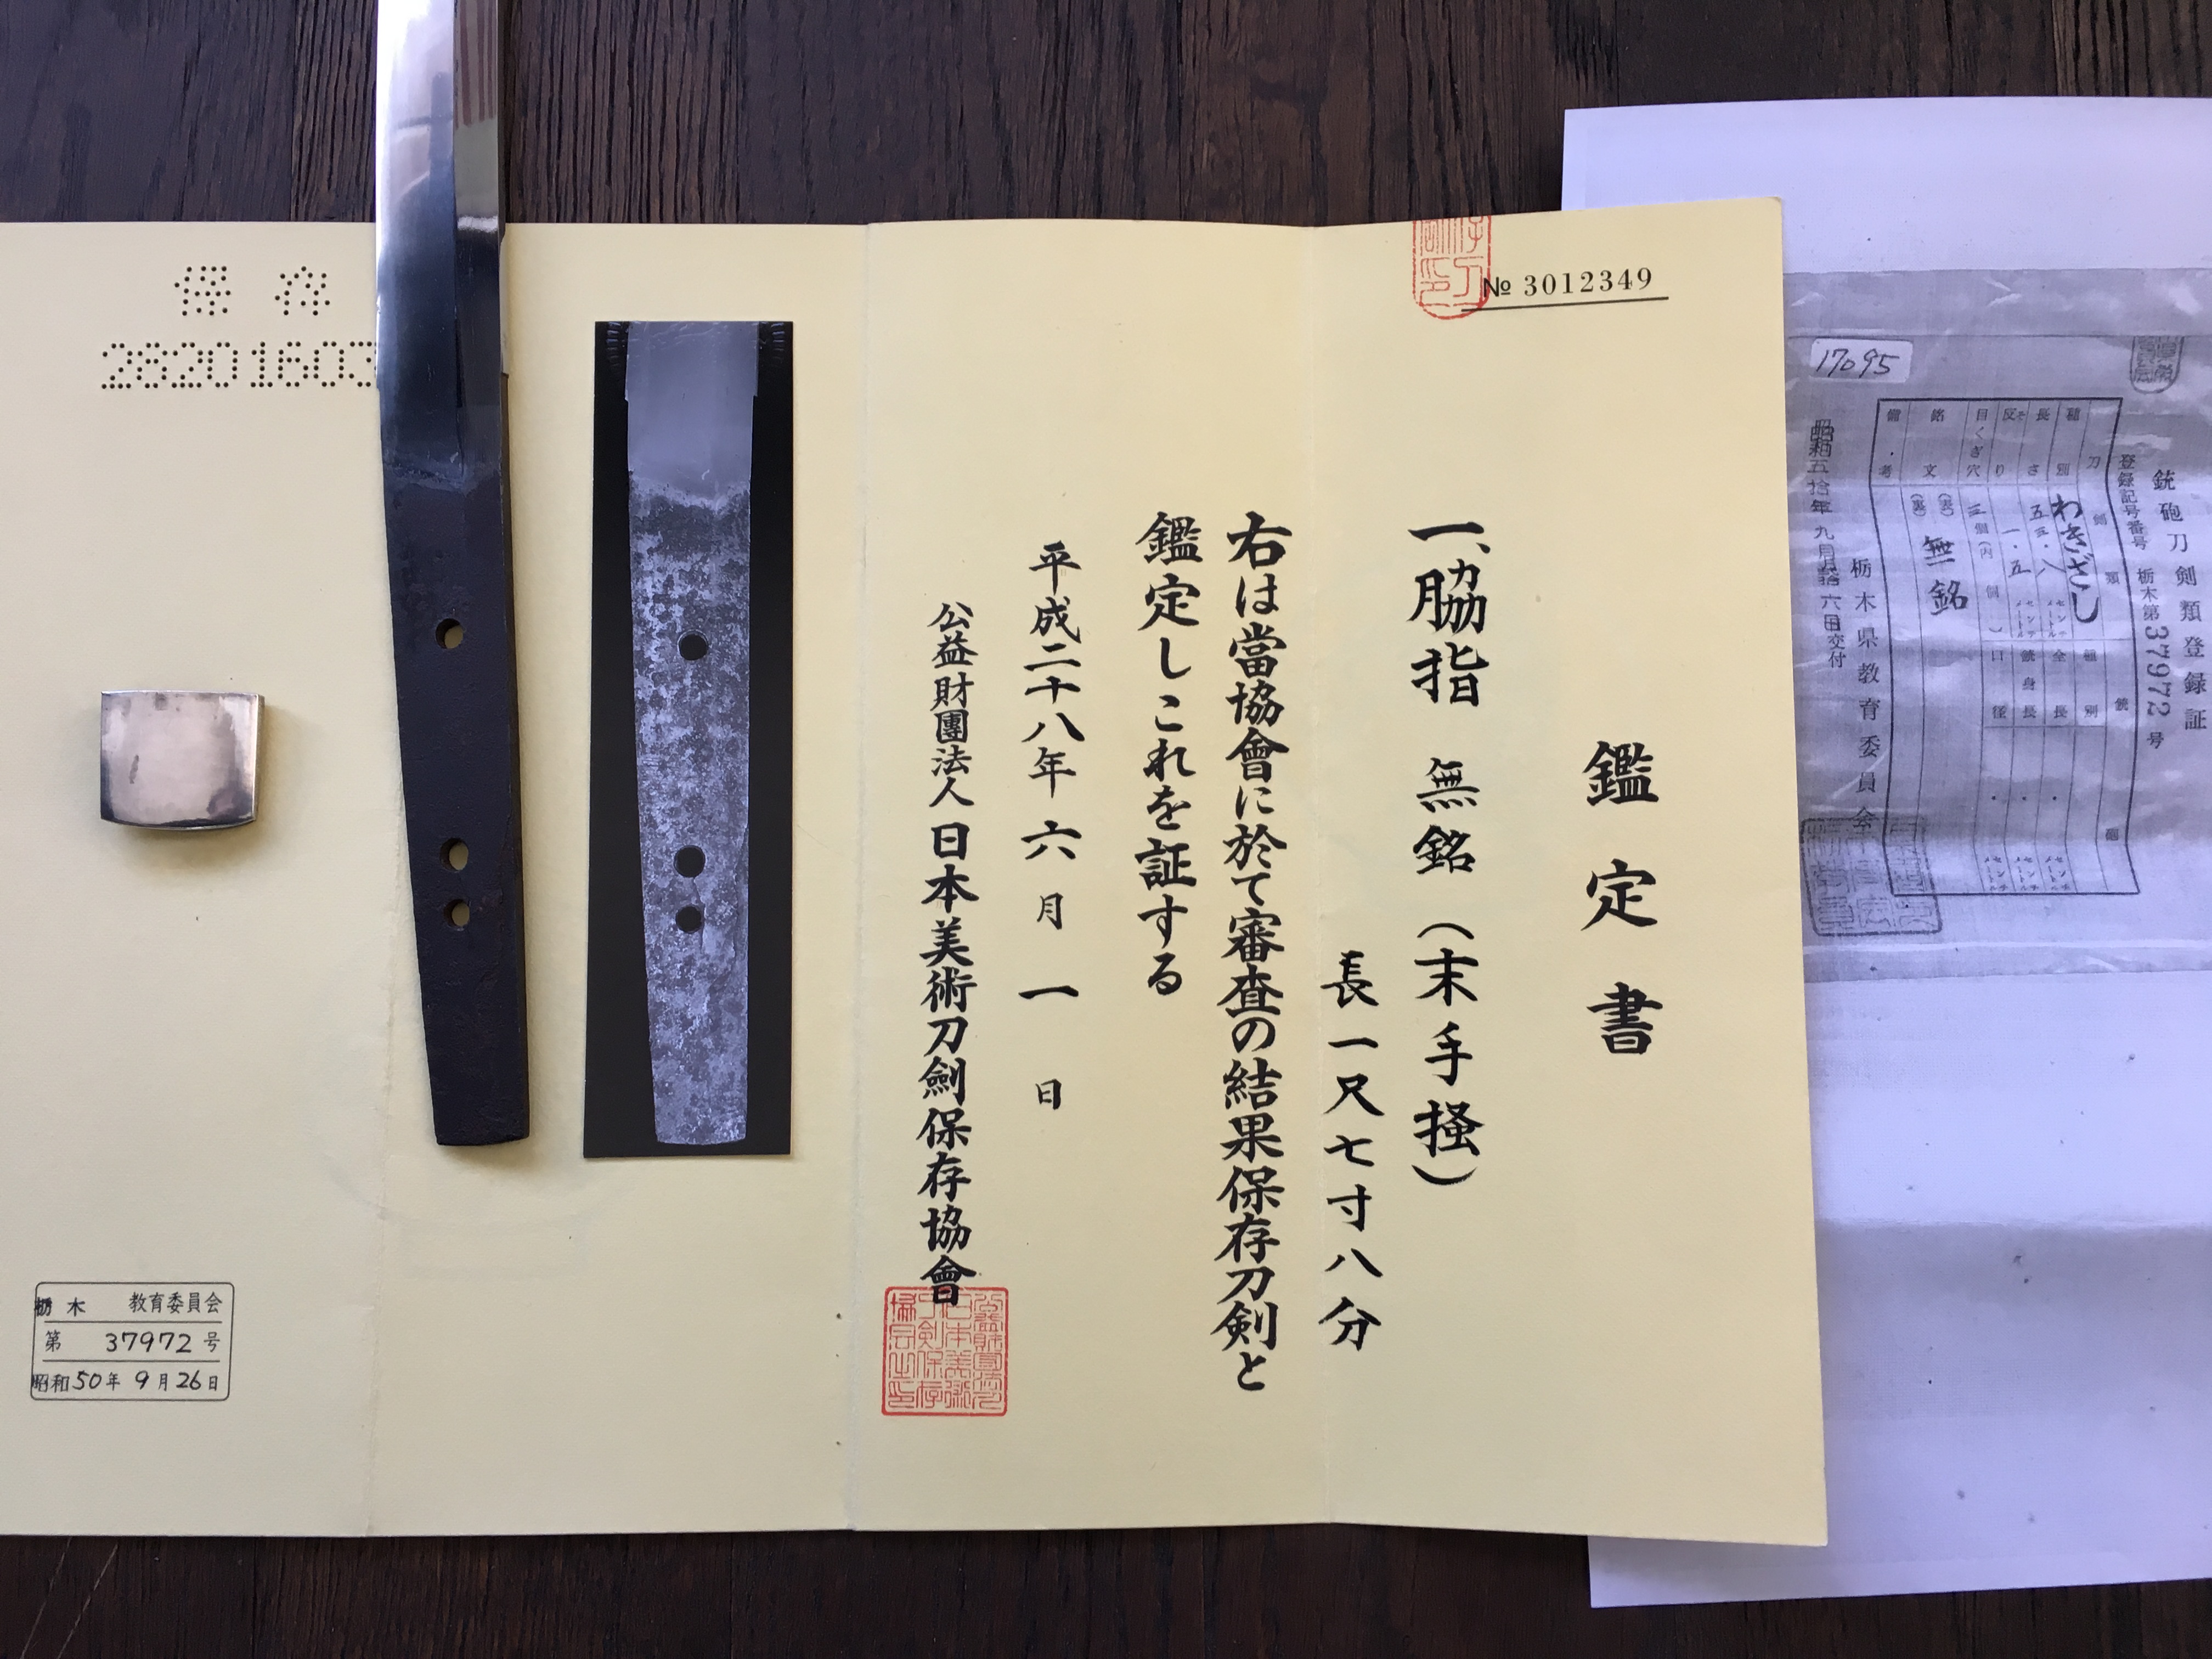 № 3012349
鑑定書
一、脇指 無銘（末手掻）
長一尺七寸八分
右は當協會に於て審査の結果保存刀剣と
鑑定しこれを証する
平成二十八年六月一日
公益財團法人日本美術刀劍保存協會
保存
28201603
栃木 教育委員会
第 37972 号
昭和50年9月26日
17095
銃砲刀剣類登録証
登録記号番号 栃木第37972号
刀剣類
種別 わきざし
長さ 五三・八 センチメートル
反り 一・五 センチメートル
目くぎ穴 三個(内 個)
銘文 (表) 無銘
(裏)
備考
銃砲
種別
全長 ・ センチメートル
銃身長 ・ センチメートル
口径 ・ センチメートル
昭和五拾年九月 六日交付
栃木県教育委員会